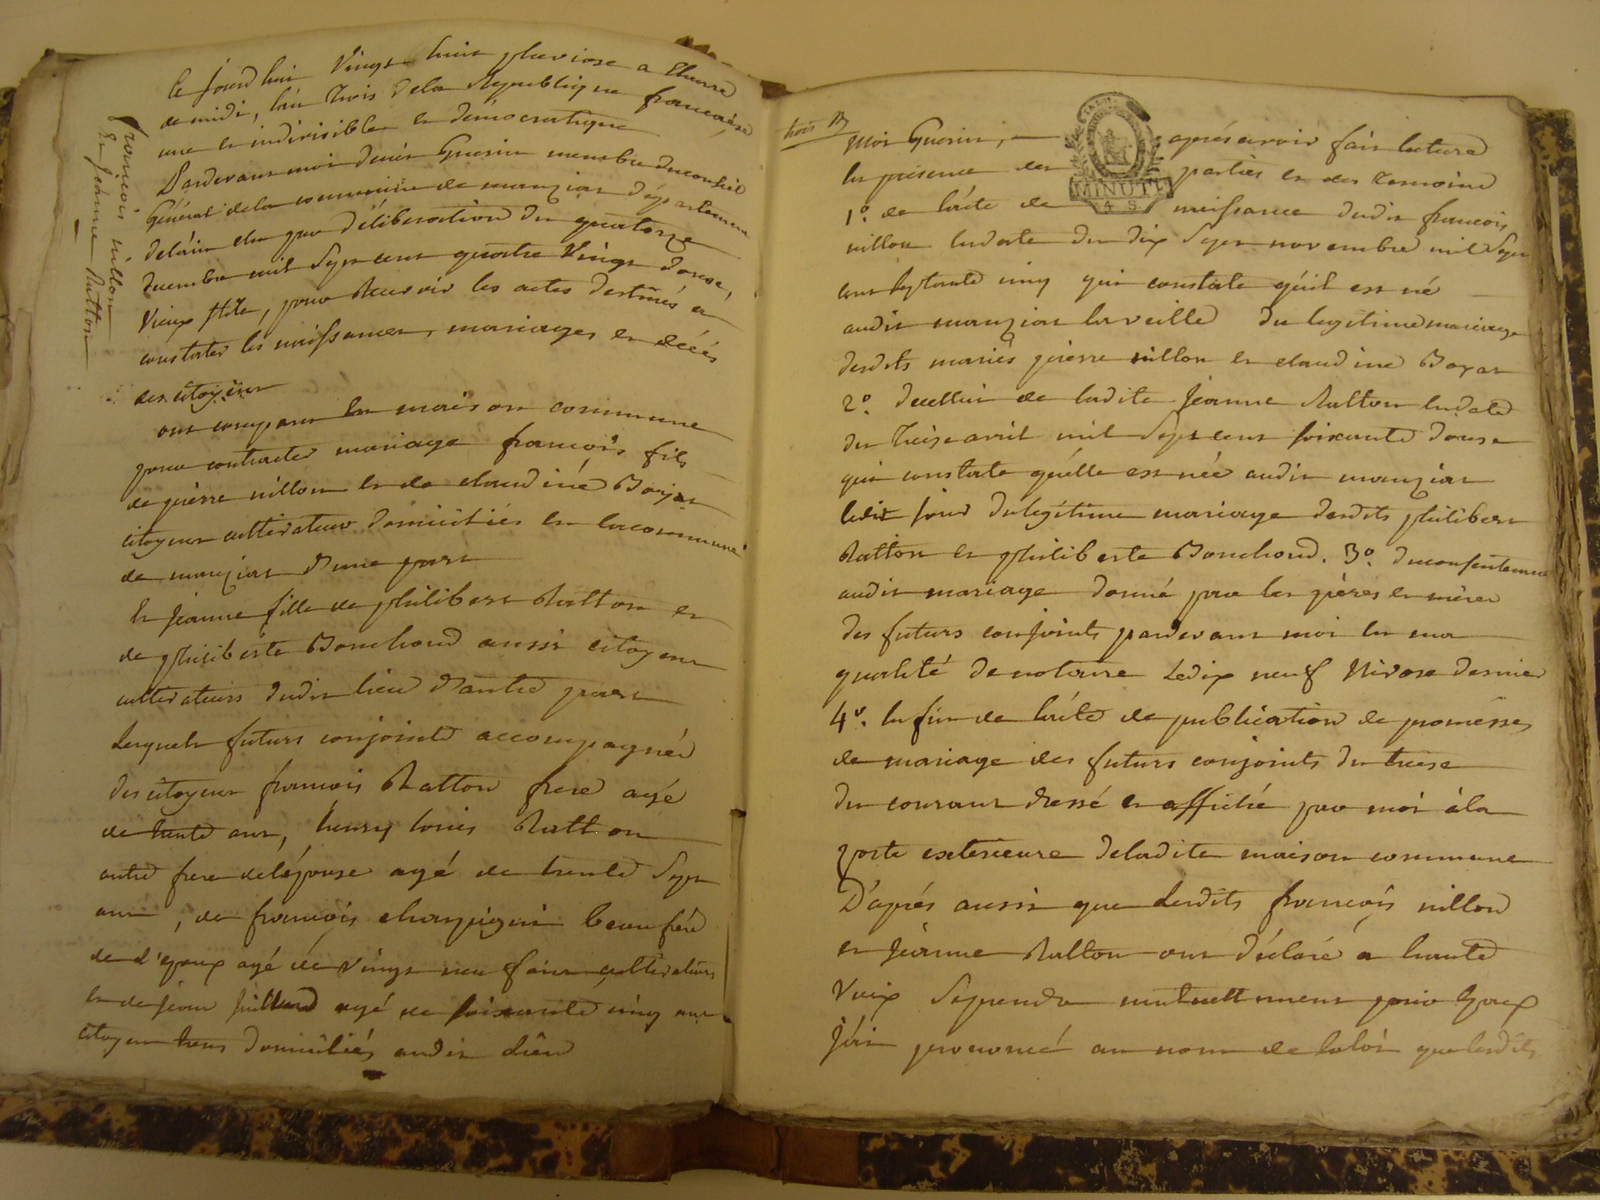 françois nillon
et jeanne Ratton
ce jourd'hui Vingt huit pluviose a l'heure
de midi, l'an Trois dela Republique française
une et indivisible et démocratique
Pardevant moi denis Guerin membre du conseil
Général dela commune de manziat département
delain elu par déliberation du quatorze
decembre mil Sept cent quatre Vingt douze,
Vieux stile, pour Recevoir les actes destinés a
constater les naissances, mariages et décés
des citoyens
ont comparu en maison commune
pour contracter mariage françois fils
de pierre nillon et de claudine Boyat
citoyens cultivateurs domiciliés en lacommune
de manziat d'une part
Et jeanne fille de philibert Ratton et
de philiberte Bouchoud aussi citoyens
cultivateurs dudit lieu d'autre part
Lesquels futurs conjoints accompagnés
des citoyens françois Ratton frere agé
de trente ans, henry louis Ratton
autre frere delépouse agé de trente Sept
ans, de françois beau frére
de l'epoux agé de vingt neuf ans cultivateurs
et de jean agé de soixante cinq ans
citoyens tous domiciliés audit lieu
trois
Moi Guerin, après avoir fait lecture
En présence des parties et des temoins
MINUTE
4 S
1o. de l'acte de naissance dudit francois
nillon endate du dix Sept novembre mil Sept
cent septante cinq qui constate qu'il est né
audit manziat laveille du legitime mariage
desdits mariés pierre nillon et claudine Boyat
2o. decellui de ladite Jeanne Ratton endate
du Treize avril mil Sept cent soixante douze
qui constate qu'elle est née audit manziat
ledit jour du légitime mariage desdits philibert
Ratton et philiberte Bouchoud. 3o. du consentement
audit mariage donné par les pères et mères
des futurs conjoints pardevant moi en ma
qualité de notaire Ledix neuf Nivose dernier
4o. enfin de l'acte de publication de promesses
de mariage des futurs conjoints du treize
du courant dressé et affiché par moi à la
porte exterieure deladite maison commune
D'après aussi que lesdits francois nillon
et Jeanne Ratton ont déclaré a haute
Voix Seprendre mutuellement pour Epoux
J'ai prononcé au nom de laloi que lesdits